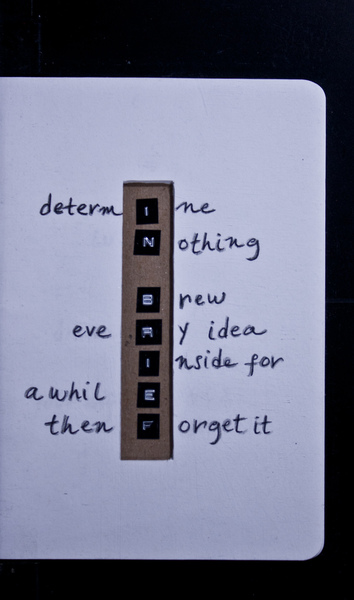 determINe
Nothing
Brew
eveRY idea
Inside for
a whilE
then Forget it